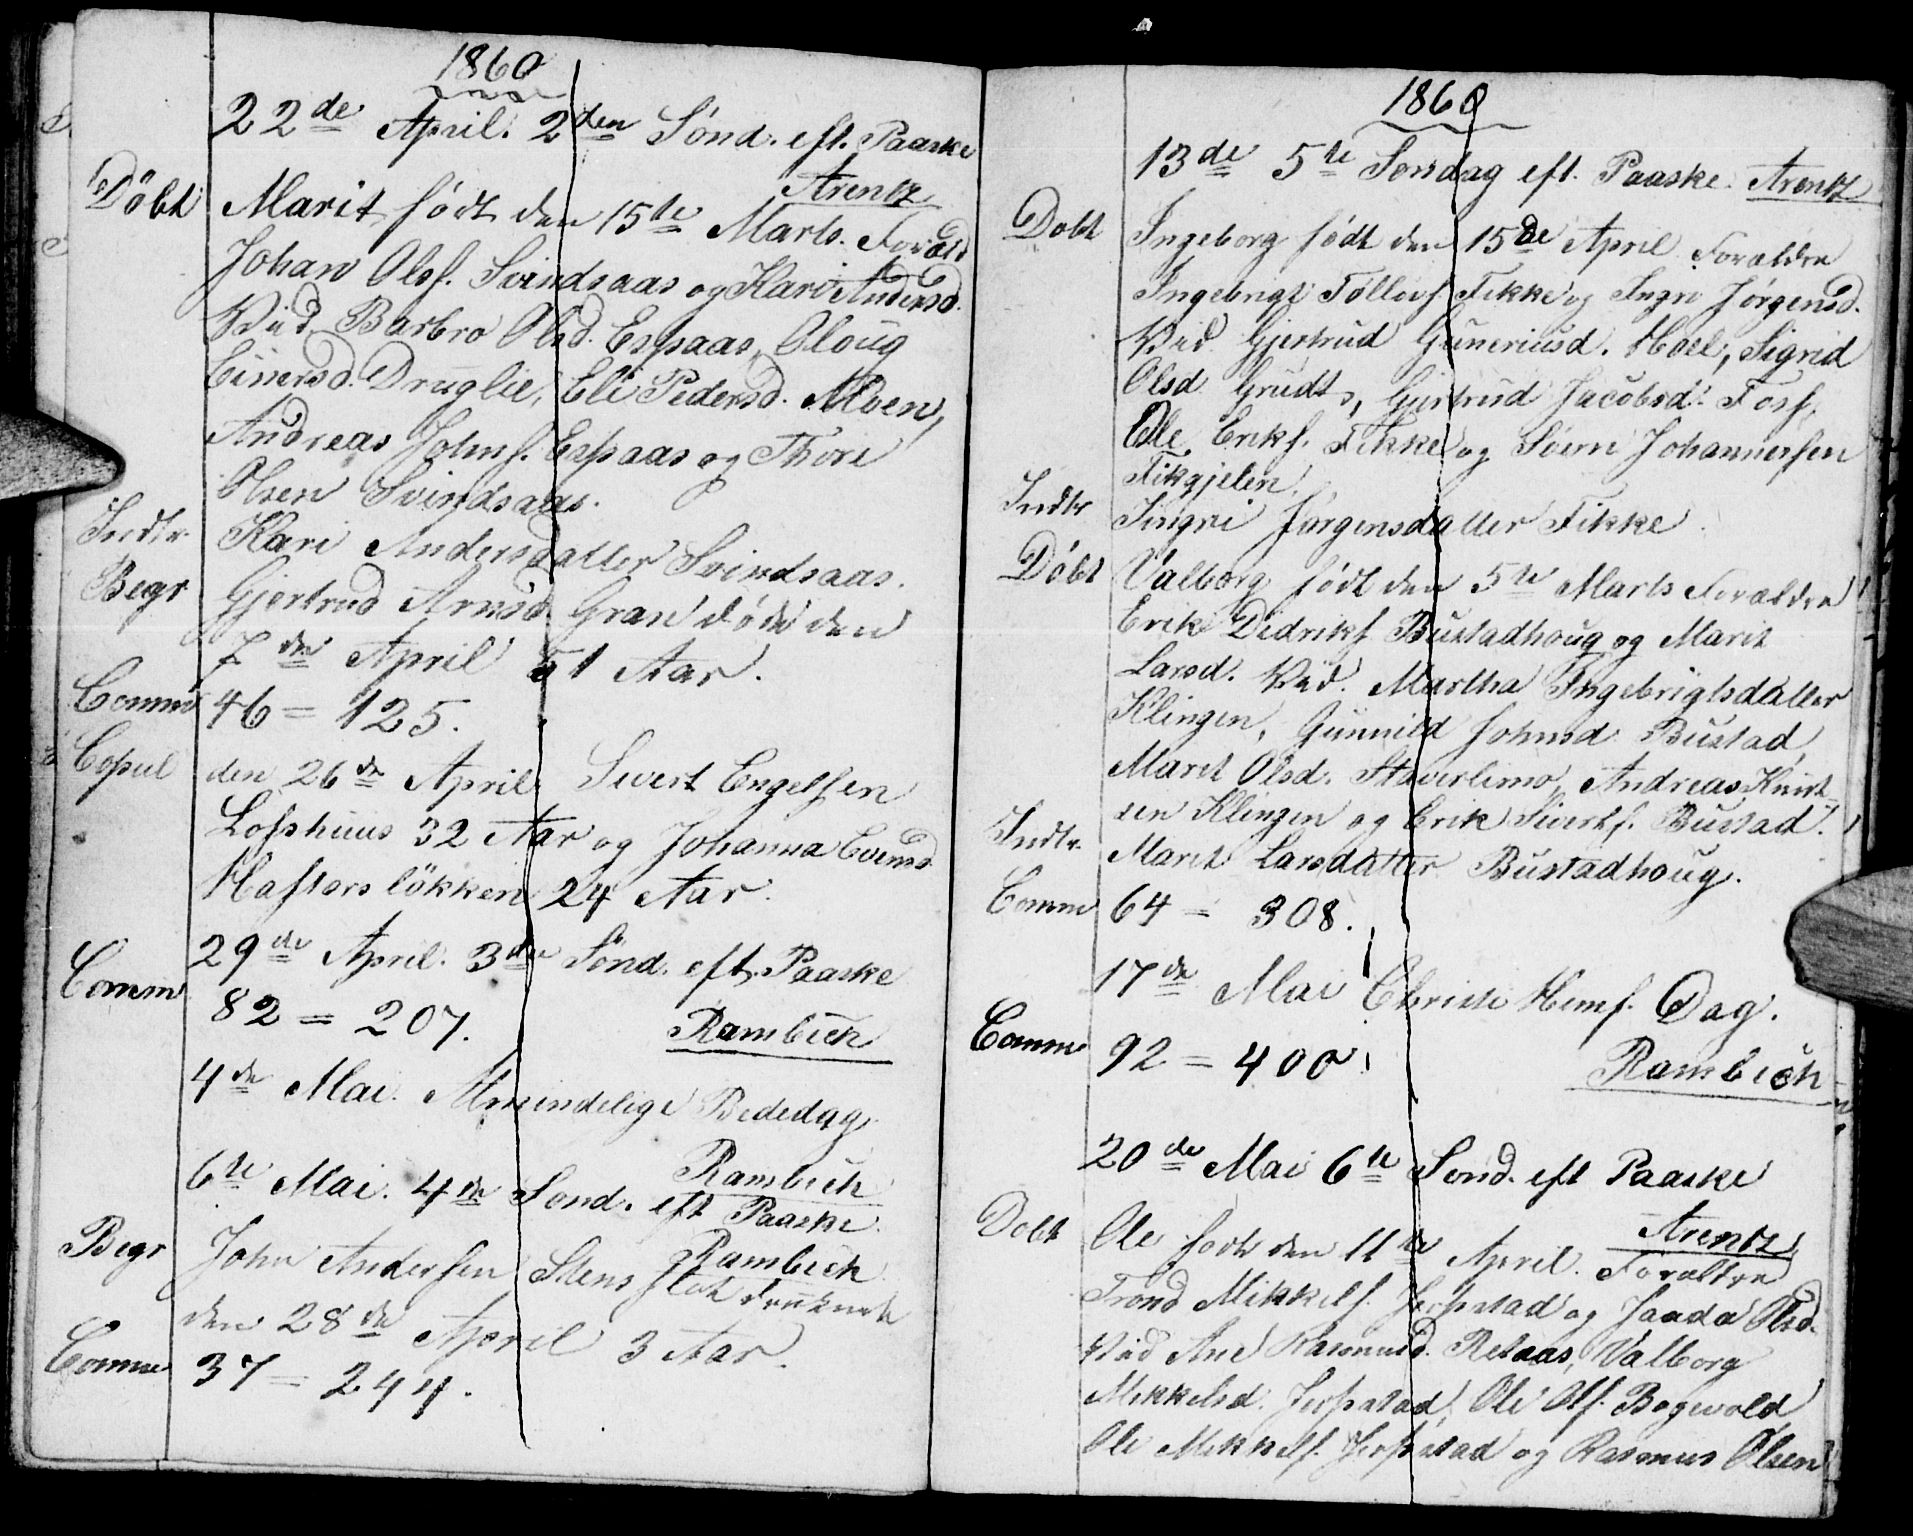 1860
22de April. 2den Sønd. eft. Paaske
Arentz
Döbt Marit födt den 15te Marts. Foræld
Johan Olss. Svindsaas og Kari Andersd.
Vid. Barbro Olsd. Espaas, Oloug
Einersd. Druglie, Eli Pedersd. Moen,
Andreas Johns. Espaas og Thore
Olsen Svindsaas.
Indtr. Kari Andersdatter Svindsaas.
Begr Gjertrud Arnsd. Gran död den
7de April 51 Aar.
Comm 46 = 125.
Copul den 26de April Sivert Engelssen
Lofshuus 32 Aar og Johanna Evensd
Haftorslökken 24 Aar.
29de April. 3de Sönd. eft. Paaske
Comm 82 = 207. Rambech
4de Mai. Almindelige Bededag
Rambech
6te Mai. 4de Sond. eft Paaske.
Rambech
Begr John Anderssen Stens slet druknede
den 28de April 3 Aar.
Comm 37 = 244.
1860
13de 5te Søndag eft. Paaske. Arentz
Dobt Ingeborg födt den 15de April Forældre
Ingebrigt Tollevs Fikke og Ingri Jörgensd.
Vid. Gjertrud Guneriusd. Hoel, Sigrid
Olsd Grudt, Gjertrud Jacobsd. Foss,
Ole Eriks. Fikke og Sören Johannessen
Fikgjelen.
Indtr Ingri Jørgensdatter Fikke.
Döbt Valborg födt den 5te Marts Forældre
Erik Didriks Bustadhoug og Marit
Larsd. Vid. Martha Ingebrigtsdatter
Klingen, Gunnild Johnsd Bustad,
Marit Olsd. Staverlimo, Andreas Knut-
sen Klingen og Erik Siverts. Bustad.
Indtr. Marit Larsdatter Bustadhoug.
Comm 64 = 308.
17de Mai Christi Himf. Dag.
Comm 92 = 400. Rambech
20de Mai 6te Sond. eft Paaske
Arentz
Dobt Ole födt den 11te April. Forældre
Trond Mikkels. Jerpstad og Jaada Olsd.
Vid Ane Rasmusd. Relaas, Valborg
Mikkelsd. Jerpstad, Ole Ols. Bogevold
Ole Mikkels. Jerpstad og Rasmus Olsen